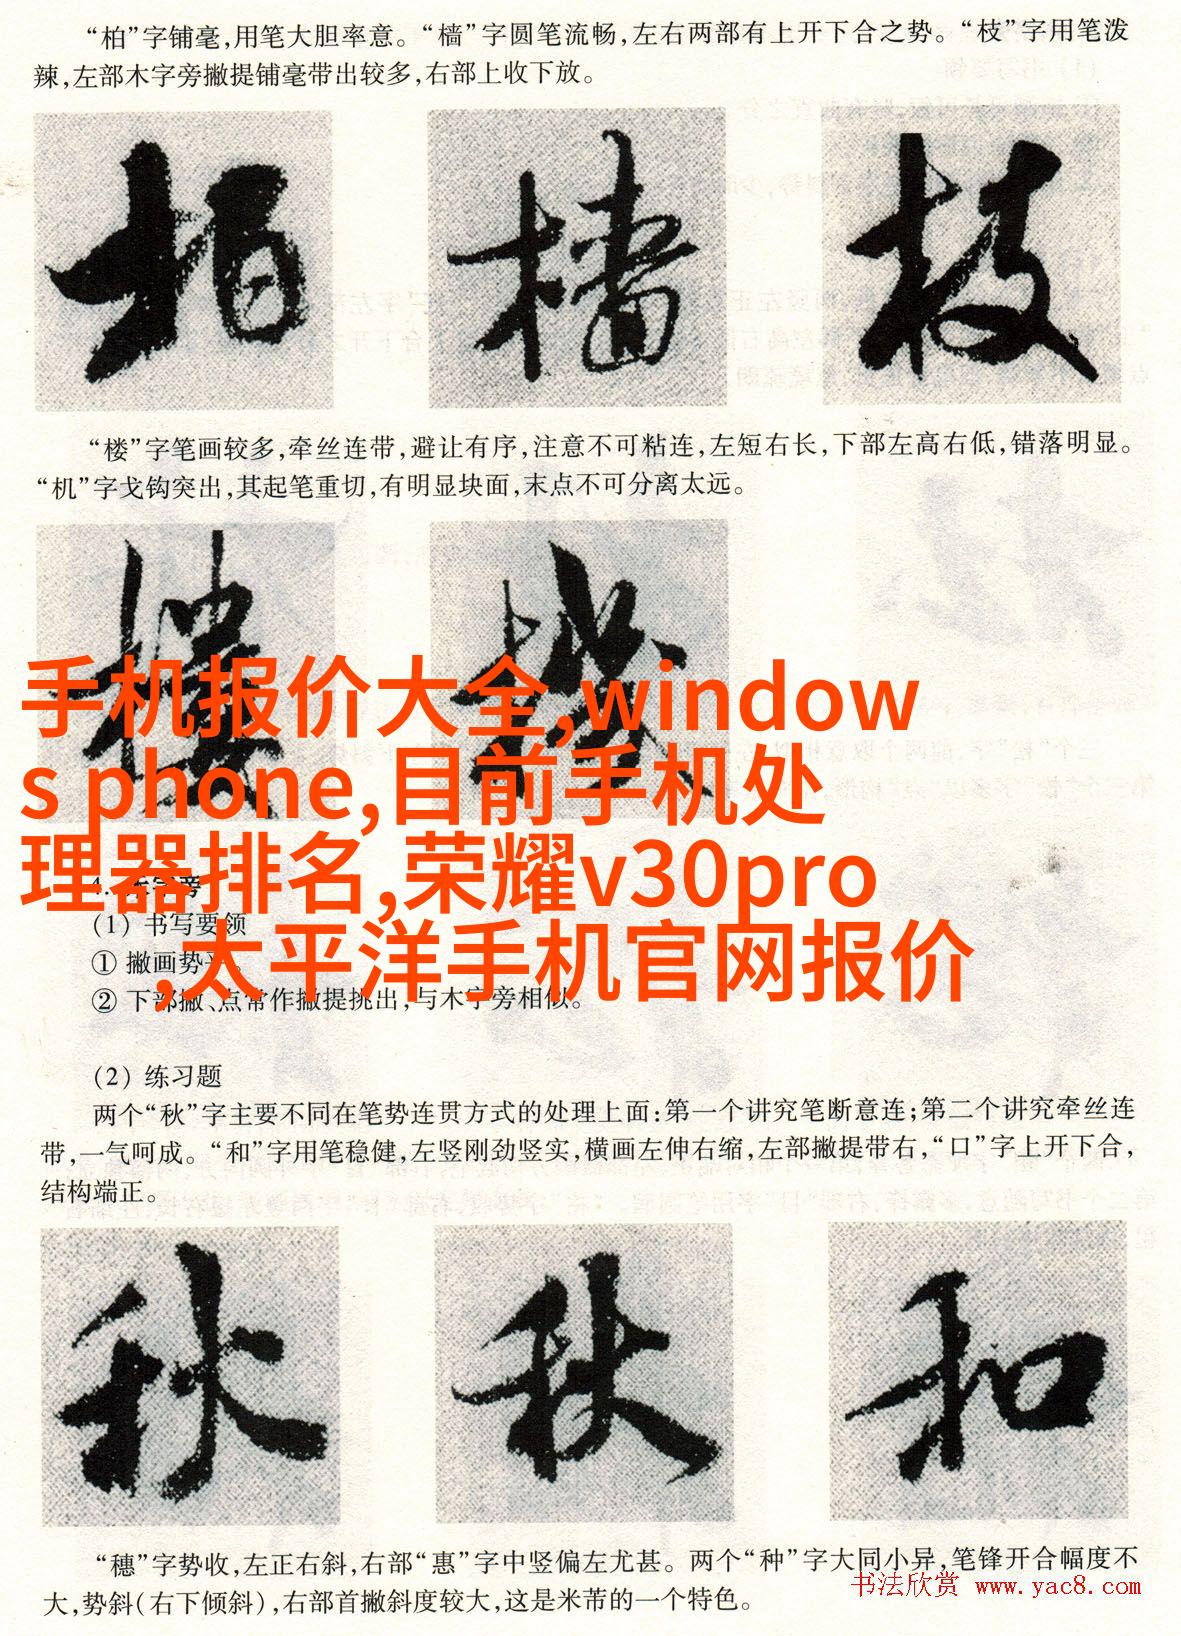 “柏”字铺毫，用笔大胆率意。“樯”字圆笔流畅，左右两部有上开下合之势。“枝”字用笔泼
辣，左部木字旁撇提铺毫带出较多，右部上收下放。
柏 樯 枝
“楼”字笔画较多，牵丝连带，避让有序，注意不可粘连，左短右长，下部左高右低，错落明显。
“机”字戈钩突出，其起笔重切，有明显块面，末点不可分离太远。
楼 機
手机报价大全,window
s phone,目前手机处
理器排名,荣耀v30pro
,太平洋手机官网报价
(1) 书写要领
① 撇画势平。
② 下部撇、点常作撇提挑出，与木字旁相似。
(2) 练习题
两个“秋”字主要不同在笔势连贯方式的处理上面：第一个讲究笔断意连；第二个讲究牵丝连
带，一气呵成。“和”字用笔稳健，左竖刚劲竖实，横画左伸右缩，左部撇提带右，“口”字上开下合，
结构端正。
秋 秋 和
“穗”字势收，左正右斜，右部“惠”字中竖偏左尤甚。两个“种”字大同小异，笔锋开合幅度不
大，势斜（右下倾斜），右部首撇斜度较大，这是米芾的一个特色。
书法欣赏 www.yac8.com